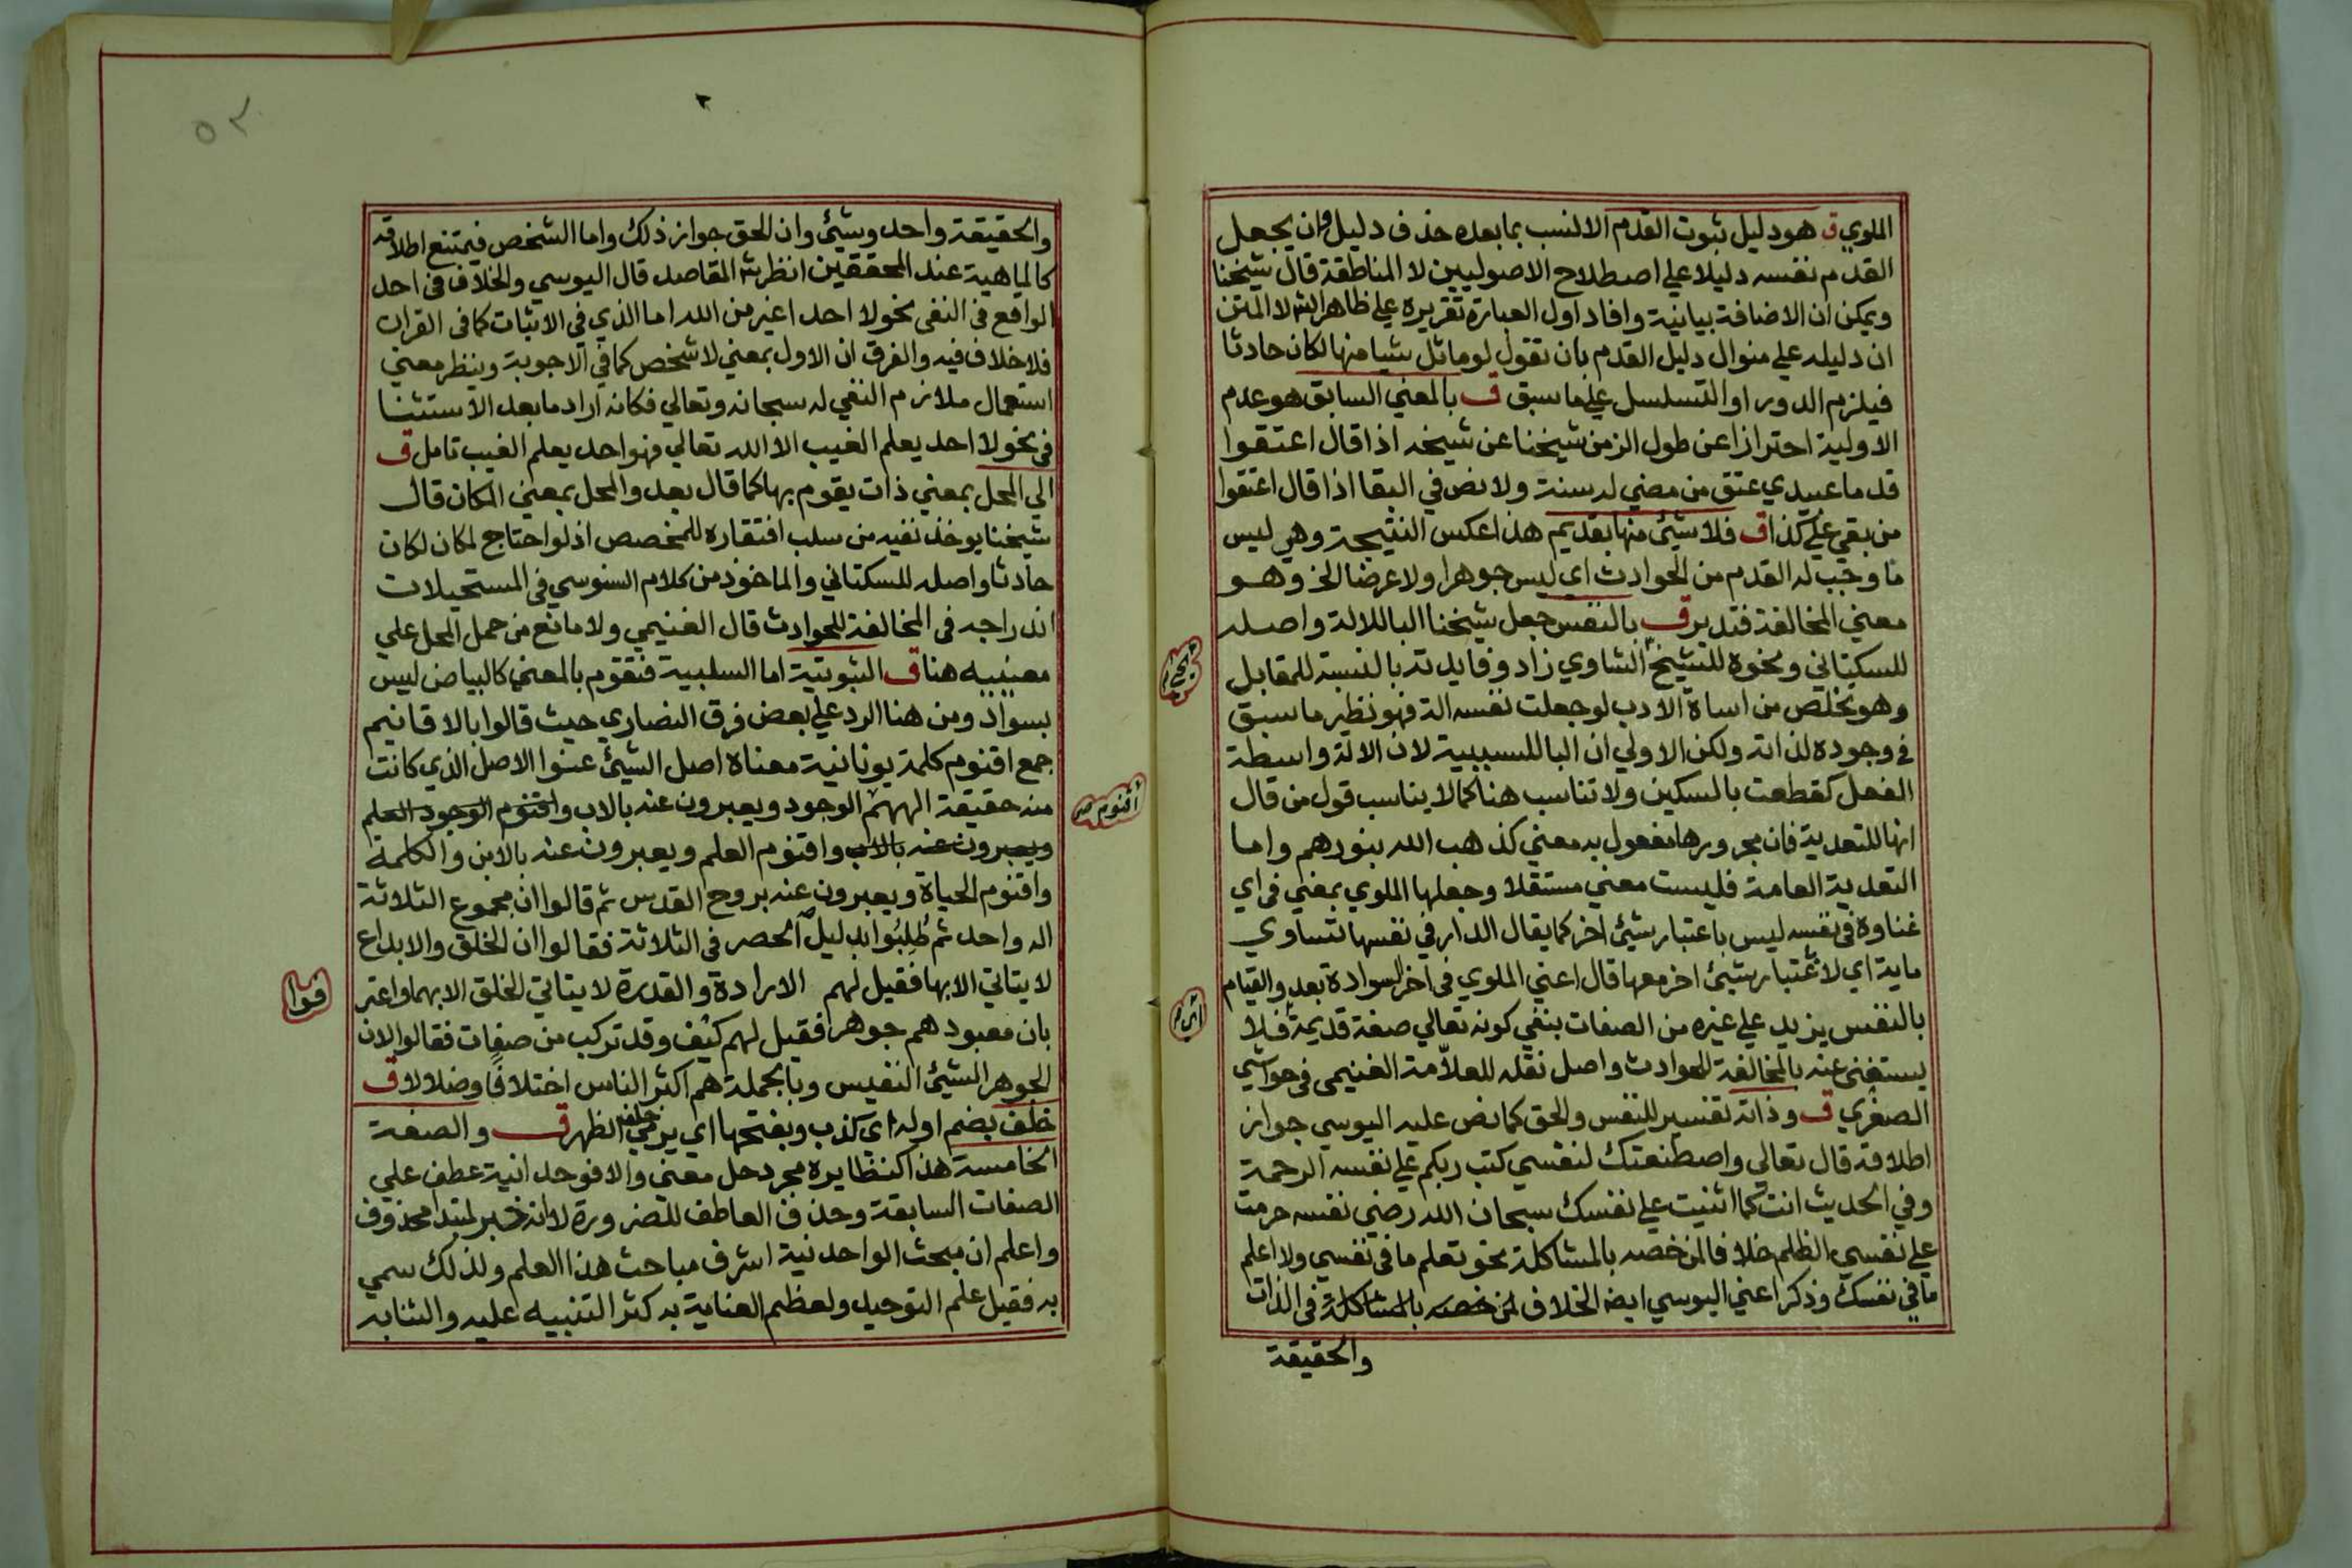 الملوي ق هو دليل ثبوت القدم الانسب بما بعده حذف دليل وان يجعل
القدم نفسه دليلا علي اصطلاح الاصوليين لا المناطقة قال شيخنا
ويمكن ان الاضافة بيانية وافاد اول العبارة تقريره علي ظاهر الش لا المتن
ان دليله علي منوال دليل القدم بان تقول لو ماثل شيا منها لكان حادثا
فيلزم الدور او التسلسل علي ما سبق ق بالمعني السابق هو عدم
الاولية احترازا عن طول الزمن شيخنا عن شيخه اذا قال اعتقوا
قدما عبيدي عتق من مضي له سنة ولا نص في البقا اذا قال اعتقوا
من بقي علي كذا ق فلا شيئ منها بقديم هذا عكس النتيجة وهي ليس
ما وجب له القدم من الحوادث اي ليس جوهرا ولا عرضا الخ وهو
معني المخالفة فتدبر ق بالنفس جعل شيخنا البا للالة واصله
للسكتاني ونحوه للشيخ يحي الشاوي زاد وفايدته بالنسبة للمقابل
وهو تخلص من اساة الادب لو جعلت نفسه الة فهو نظير ما سبق
في وجوده لذاته ولكن الاولي ان البا للسببية لان الالة واسطة
الفعل كقطعت بالسكين ولا تناسب هنا كما لا يناسب قول من قال
انها للتعدية فان مجرورها مفعول به معني كذهب الله بنورهم واما
التعدية العامة فليست معني مستقلا وجعلها الملوي بمعني في اي
غناوه في نفسه ليس باعتبار شيئ اخر كما يقال الدار في نفسها تساوي
ماية اي لا باعتبار شيئ اخر معها قال اعني الملوي في اخر السوادة بعد والقيام
بالنفس يزيد علي غيره من الصفات بنفي كونه تعالي صفة قديمة اي فلا
يستغني عنه بالمخالفة للحوادث واصل نقله للعلامة الغنيمي في حواشي
الصغري ق وذاته تفسير للنفس والحق كما نص عليه اليوسي جواز
اطلاقه قال تعالي واصطنعتك لنفسي كتب ربكم علي نفسه الرحمة
وفي الحديث انت كما اثنيت علي نفسك سبحان الله رضي نفسه حرمت
علي نفسي الظلم خلافا لمن خصه بالمشاكلة نحو تعلم ما في نفسي ولا اعلم
ما في نفسك وذكر اعني اليوسي ايضا الخلاف لمن خصه بالمشاكلة في الذات
والحقيقة
٥٢
والحقيقة واحد وشيئ وان الحق جواز ذلك واما الشخص فيمتنع اطلاقه
كالماهية عند المحققين انظر ش المقاصد قال اليوسي والخلاف في احد
الواقع في النفي نحو لا احد اغير من الله اما الذي في الاثبات كما في القران
فلا خلاف فيه والفرق ان الاول بمعني لا شخص كما في الاجوبة وينظر معني
استعمال ملازم النفي له سبحانه وتعالي فكانه اراد ما بعد الاستثنا
في نحو لا احد يعلم الغيب الا الله تعالي فهو احد يعلم الغيب تامل ق
الي المحل بمعني ذات يقوم بها كما قال بعد والمحل بمعني المكان قال
شيخنا يوخذ نفيه من سلب افتقاره للمخصص اذ لو احتاج لمكان لكان
حادثا واصله للسكتاني والماخوذ من كلام السنوسي في المستحيلات
اندراجه في المخالفة للحوادث قال الغنيمي ولا مانع من حمل المحل علي
معنييه هنا ق الثبوتية اما السلبية فتقوم بالمعني كالبياض ليس
بسواد ومن هنا الرد علي بعض فرق النصاري حيث قالوا بالاقانيم
جمع اقنوم كلمة يونانية معناه اصل الشيئ عنوا الاصل الذي كانت
منه حقيقة الههم اقنوم الوجود ويعبرون عنه بالاب واقنوم الوجود العلم
ويعبرون عنه بالاب واقنوم العلم ويعبرون عنه بالابن والكلمة
واقنوم الحياة ويعبرون عنه بروح القدس ثم قالوا ان مجموع الثلاثة
اله واحد ثم طُلِبُوا بدليل الحصر في الثلاثة فقالوا ان الخلق والابداع
لا يتاتي الا بها فقيل لهم الارادة والقدرة لا يتاتي الخلق الا بهما واعترفوا
بان معبودهم جوهر فقيل لهم كيف وقد تركب من صفات فقالوا لان
الجوهر الشيئ النفيس وبالجملة هم اكثر الناس اختلافا وضلالا ق
خلف بضم اوله اي كذب وبفتحها اي يرمي خلف الظهر ق والصفة
الخامسة هذا كنظايره مجرد حل معني والا فوحدانية عطف علي
الصفات السابقة وحذف العاطف للضرورة لا انه خبر لمبتدا محذوف
واعلم ان مبحث الواحدنية اشرف مباحث هذا العلم ولذلك سمي
به فقيل علم التوحيد ولعظم العناية به كثر التنبيه عليه والثنا به